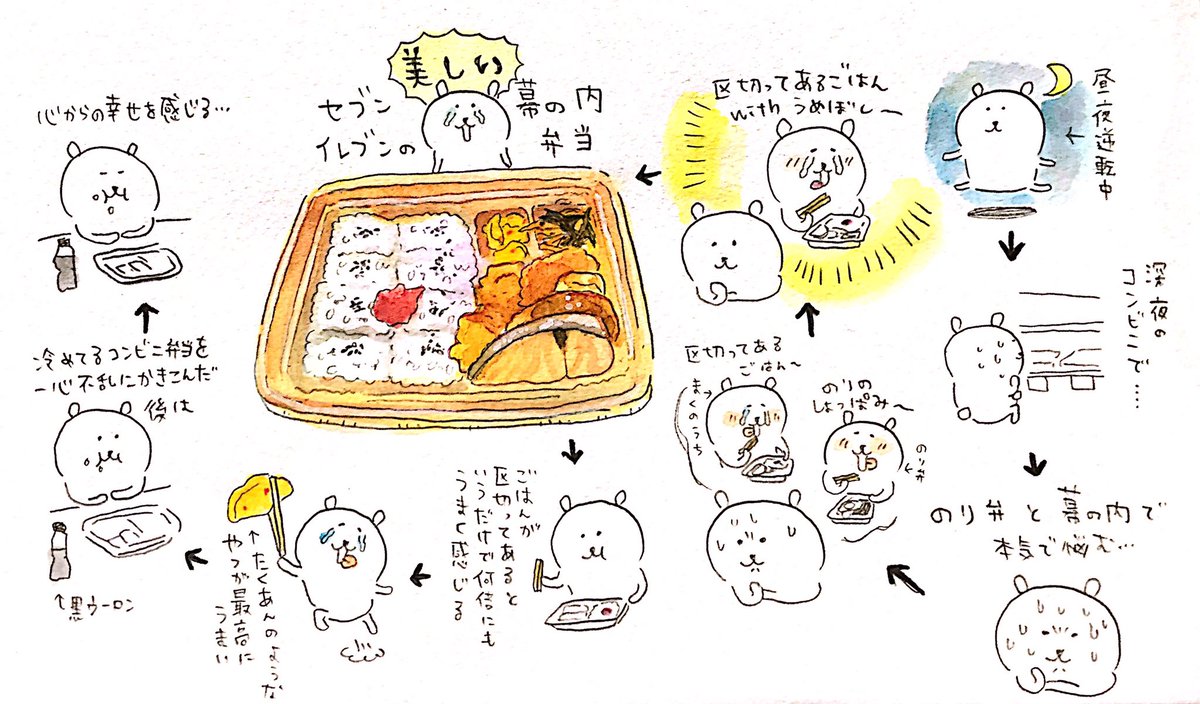 昼夜逆転中
深夜の
コンビニで……
のり弁と幕の内で
本気で悩む…
のりの
しょっぱみ〜
のり弁
区切ってある
ごはん〜
まくのうち
区切ってあるごはん
with うめぼし〜
美しい
セブン
イレブンの
幕の内
弁当
ごはんが
区切ってあると
いうだけで何倍にも
うまく感じる
↑たくあんのような
やつが最高に
うまい
冷めてるコンビニ弁当を
一心不乱にかきこんだ
後は
↑黒ウーロン
心からの幸せを感じる…